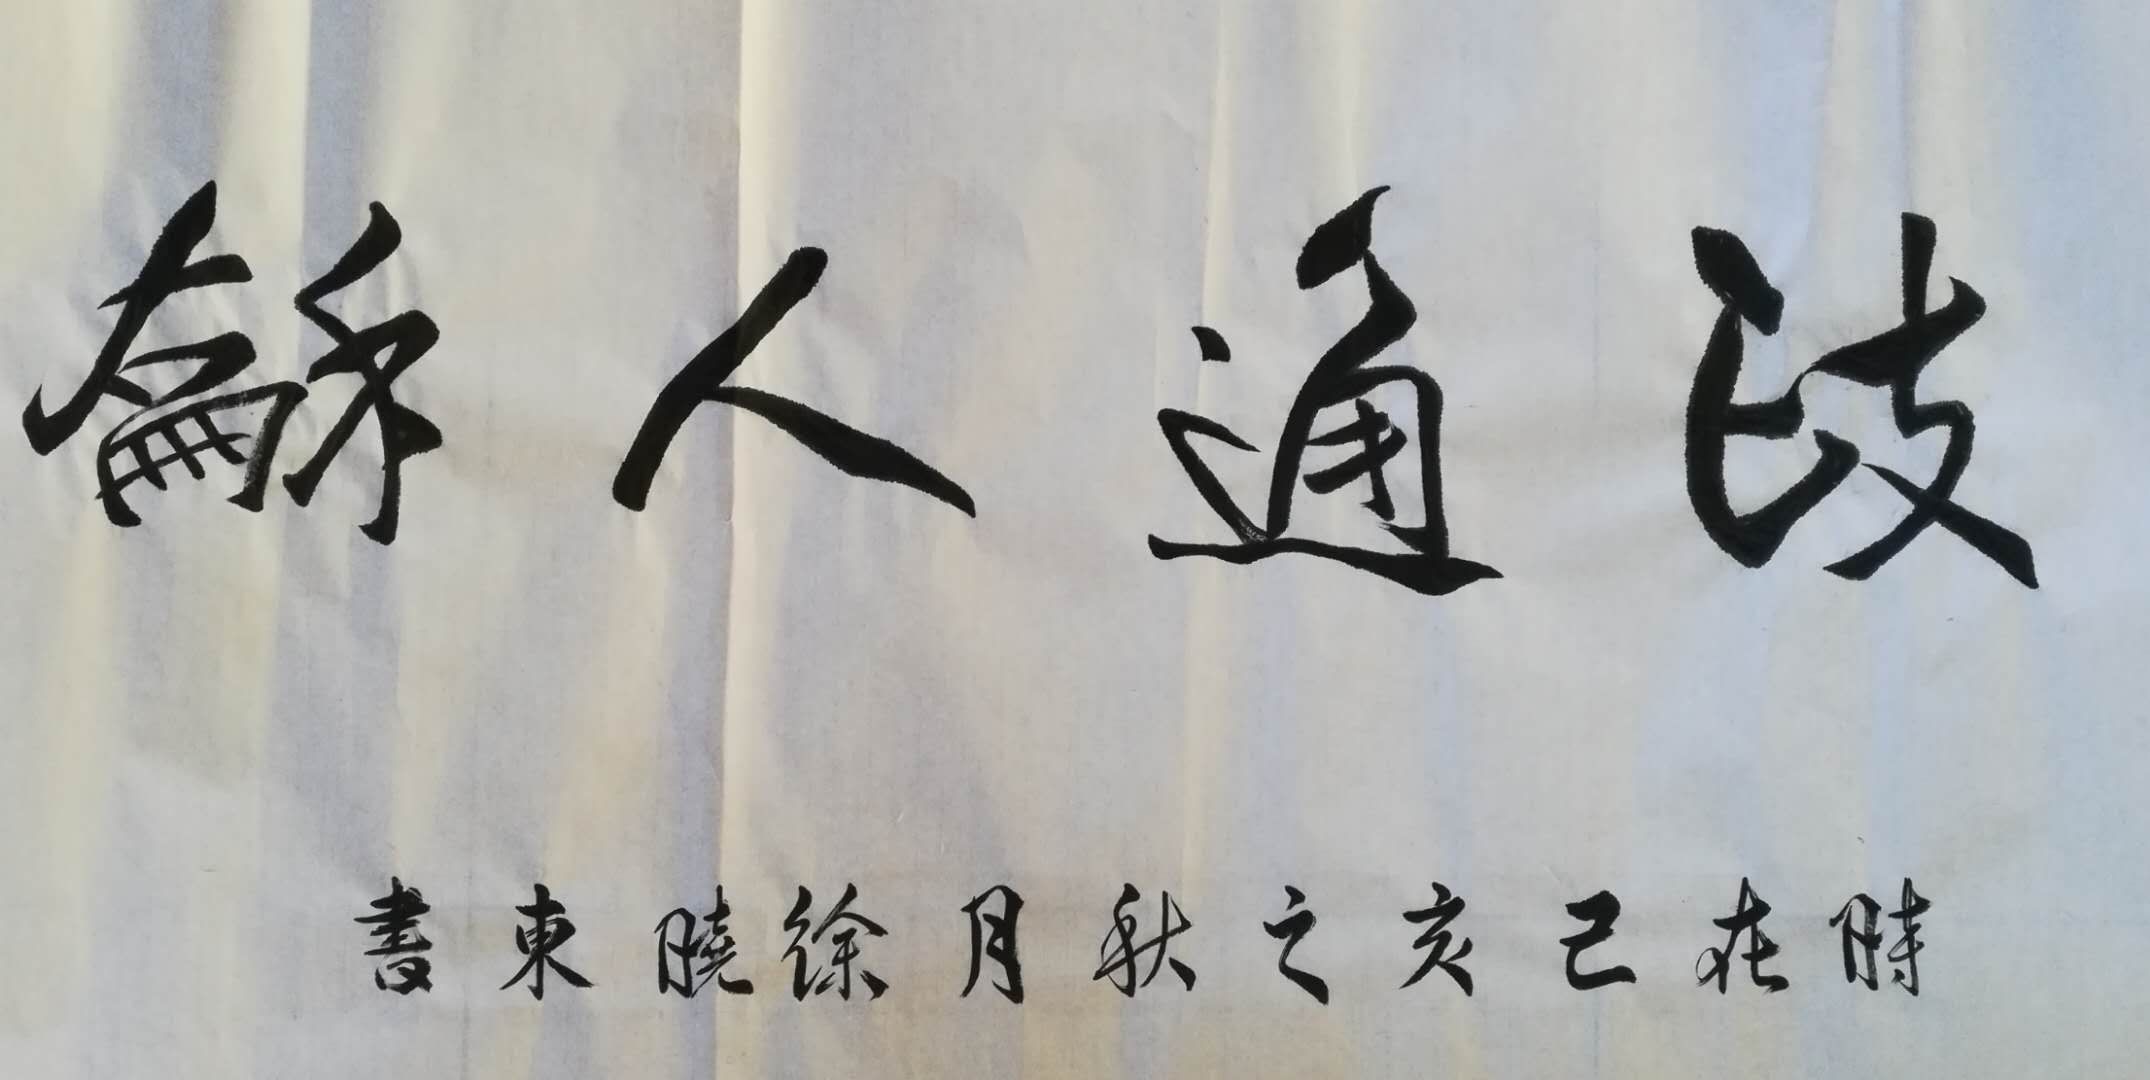 政通人龢
時在己亥之秋月徐曉東書